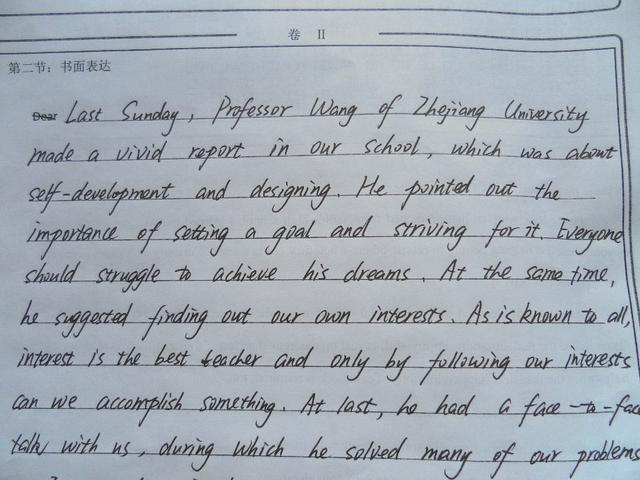 卷 II
第二节：书面表达
Last Sunday, Professor Wang of Zhejiang University
made a vivid report in our school, which was about
self-development and designing. He pointed out the
importance of setting a goal and striving for it. Everyone
should struggle to achieve his dreams. At the same time,
he suggested finding out our own interests. As is known to all,
interest is the best teacher and only by following our interests
can we accomplish something. At last, he had a face-to-face
talk with us, during which he solved many of our problems